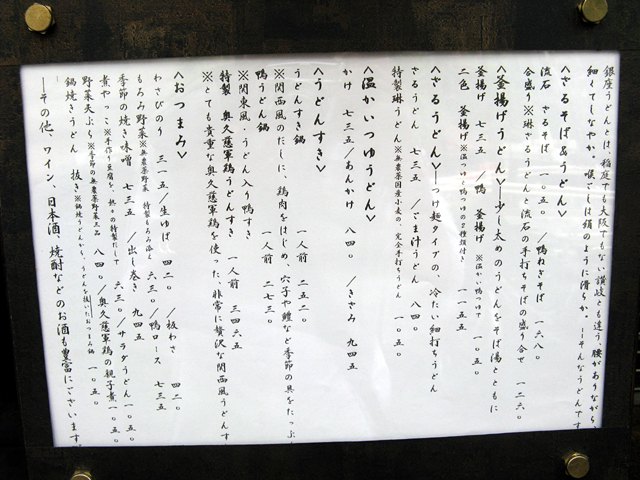 銀座うどんとは、稲庭でも大阪でもない讃岐とも違う、腰がありながら、
細くてしなやか、喉ごしは絹のように滑らか、ーそんなうどんです
<ざるそば&うどん>
流石 ざるそば 一〇五〇 /鴨ねぎそば 一六八〇
合盛り※琳ざるうどんと流石の手打ちそばの盛り合せ 一二六〇
<釜揚げうどん>ー少し太めのうどんをそば湯とともに
釜揚げ 七三五/鴨 釜揚げ ※温かい鴨つゆで 一〇五〇
二色 釜揚げ※温つゆ・鴨つゆの2種類付き 一一五五
<ざるうどん>ーつけ麺タイプの、冷たい細打ちうどん
ざるうどん 七三五/ごま汁うどん 八四〇
特製琳うどん※無農薬国産小麦の、完全手打ちうどん 一〇五〇
<温かいつゆうどん>
かけ 七三五/あんかけ 八四〇 /きざみ 九四五
<うどんすき>
うどんすき鍋 一人前 二五二〇
※関西風のだしに、鶏肉をはじめ、穴子や鱧など季節の具をたっぷ
鴨うどん鍋 一人前 二七三〇
※関東風・うどん入り鴨すき
特製 奥久慈軍鶏うどんすき 一人前 三四六五
※とても貴重な奥久慈軍鶏を使った、非常に贅沢な関西風うどんす
<おつまみ>
わさびのり 三一五/生ゆば 四二〇 /板わさ 四二〇
もろみ野菜※無農薬野菜 特製もろみ添え 六三〇/鴨ロース 七三五
季節の焼き味噌 七三五 /出し巻き 九四五
煮やっこ※手作り豆腐を、熱々の特製だしで 六三〇/サラダうどん一〇五〇
野菜天ぷら※季節の無農薬野菜三品 八四〇/奥久慈軍鶏の親子煮一〇五〇
鍋焼きうどん 抜き※鍋焼うどんから、うどんを抜いたおつまみ鍋 一〇五〇
ーその他、ワイン、日本酒、焼酎などのお酒も豊富にございます